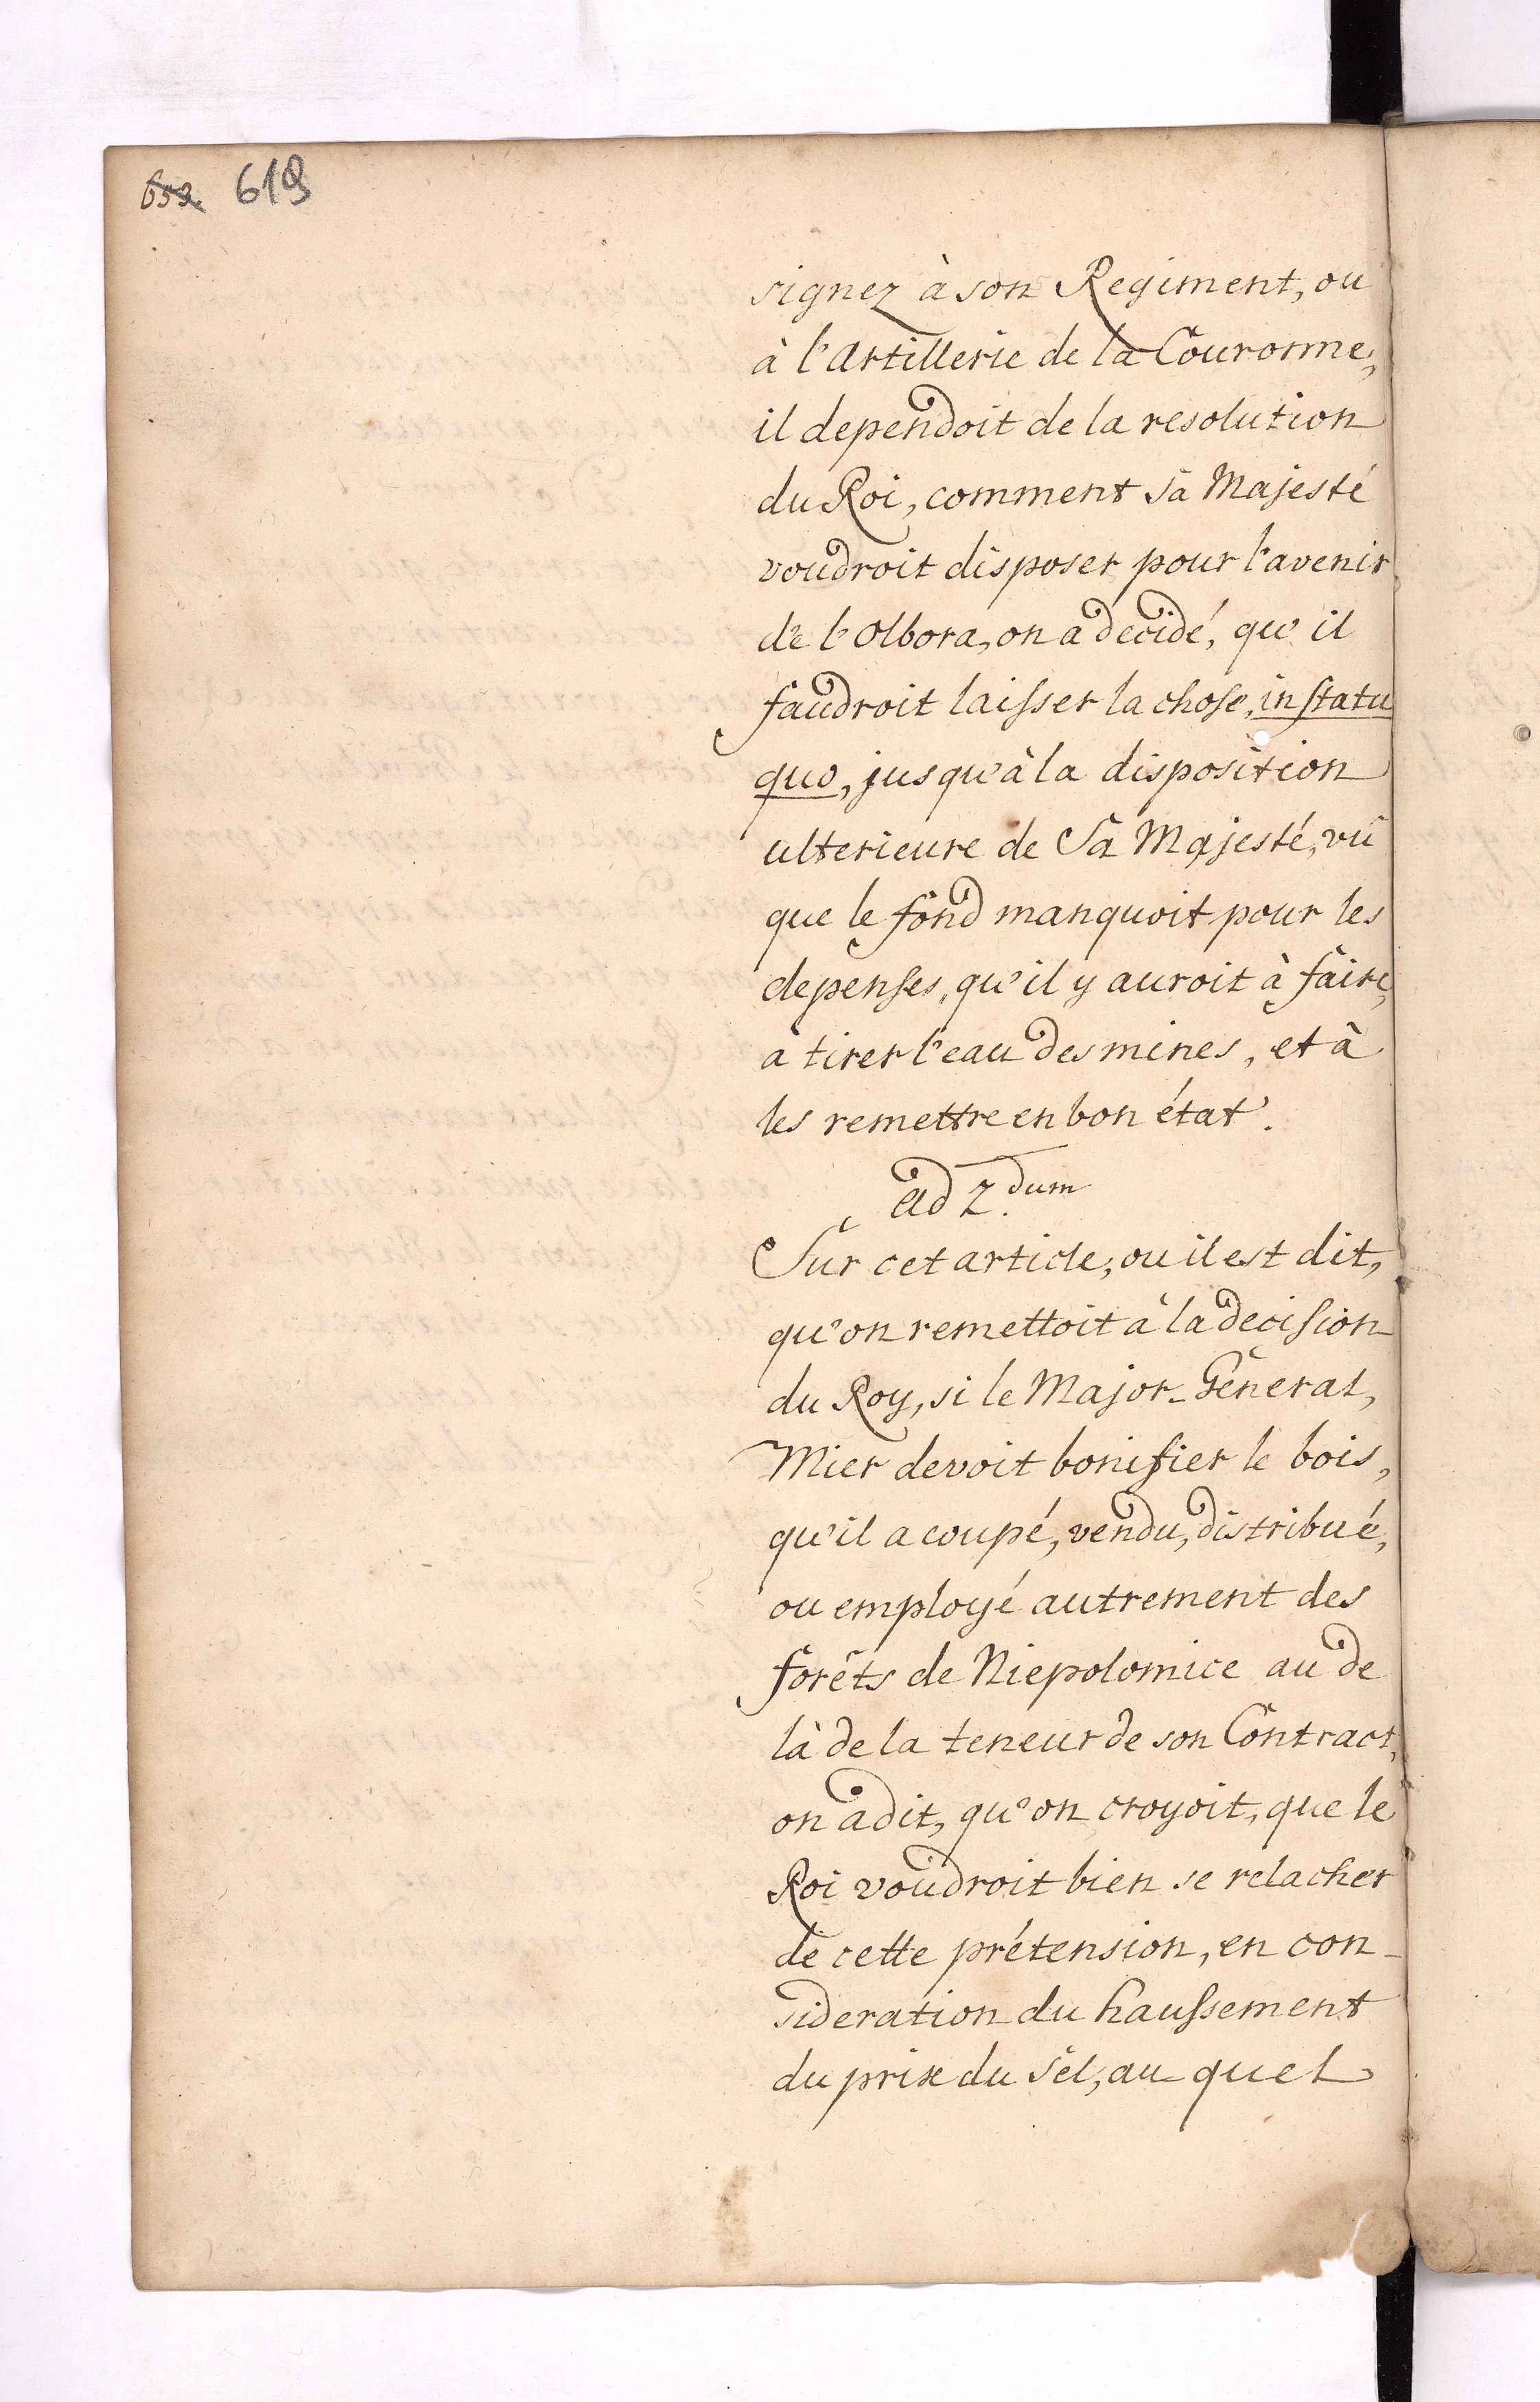 619
signez à son Regiment, ou
à l'Artillerie de la Couronne,
il dependoit de la resolution
du Roi, comment sa Majesté
voudroit disposer pour l'avenir
de l'Olbora, on a decidé, qu'il
faudroit laisser la chose, in statu
quo, jusqu'à la disposition
ulterieure de Sa Majesté, vû
que le fond manquoit pour les
depenses, qu'il y auroit à faire,
a tirer l'eau des mines, et à
les remettre en bon état.
ad 2.dum
Sur cet article, ou il est dit,
qu'on remettoit à la decision
du Roy, si le Major-Géneral,
Mier devoit bonifier le bois,
qu'il a coupé, vendu, distribué,
ou employé autrement des
forêts de Niepolomice au de
là de la teneur de son Contract,
on a dit, qu'on croyoit, que le
Roi voudroit bien se relacher
de cette prétension, en con-
sideration du haussement
du prix du sel, au quel